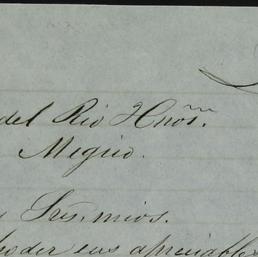 del Rio Hnos.
Mejico.
Srẽs. mios.
poder sus apreciables